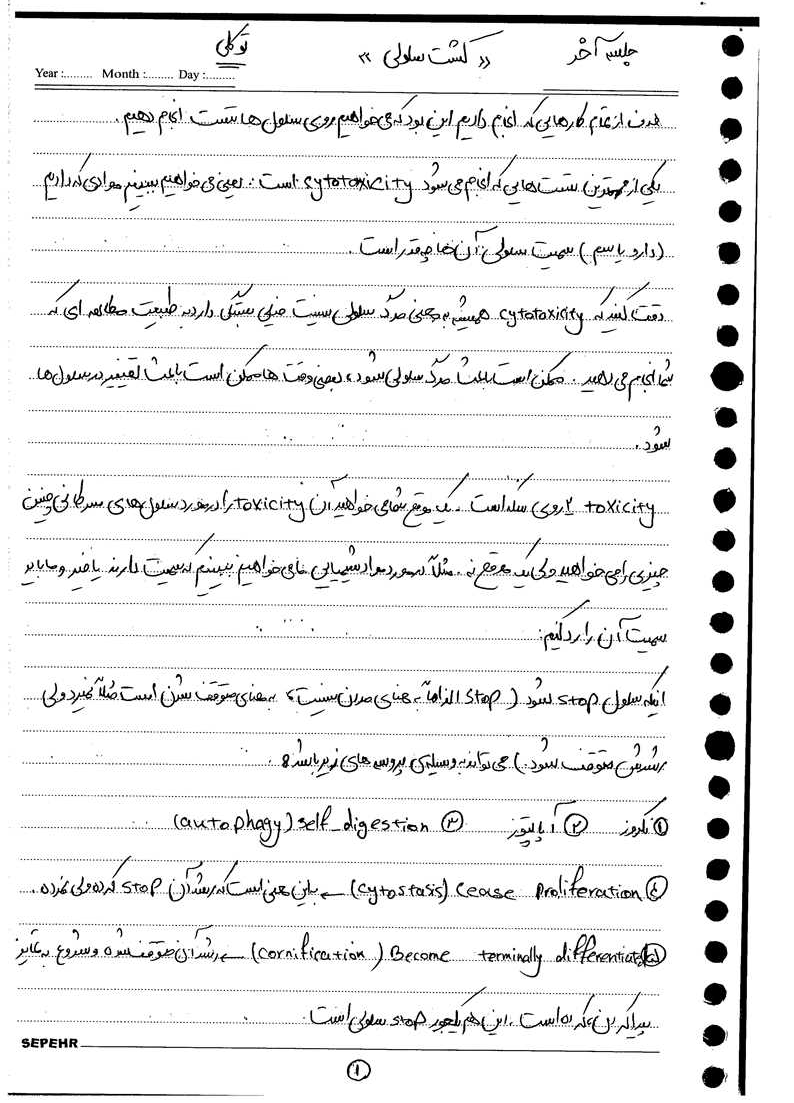 جلسه آخر «کشت سلولی» توکلی
Year :......... Month :......... Day :.........
هدف از تمام کارهایی که انجام دادیم این بود که می خواهیم روی سلول ها تست انجام دهیم.
یکی از مهمترین تست هایی که انجام می شود cytotoxicity است. یعنی می خواهیم ببینیم موادی که داریم
(دارو یا سم) سمیت سلولی آن ها چقدر است.
دقت کنید که cytotoxicity همیشه به معنی مرگ سلولی نیست خیلی بستگی دارد به طبیعت مطالعه ای که
شما انجام می دهید. ممکن است باعث مرگ سلولی شود، بعضی وقت ها ممکن است باعث تغییر در سلول ها
شود.
toxicity ۲ روی سکه است. یک موقع شما می خواهید آن toxicity را در مورد سلول های سرطانی چنین
چیزی را می خواهید ولی یک موقع نه. مثلاً در مورد مواد شیمیایی ما می خواهیم ببینیم که سمیت دارند یا خیر و ما باید
سمیت آن را رد کنیم.
اینکه سلول stop شود (stop الزاماً به معنای مردن نیست، به معنای متوقف شدن است مثلاً نمیرد ولی
رشدش متوقف شود.) می تواند به وسیله ی پروسه های زیر باشد:
① نکروز ② آپاپتوز ③ self_digestion (autophagy)
④ Cease Proliferation (cytostasis) ← به این معنی است که رشد آن stop کرده ولی نمرده.
⑤ Become terminally differentiated (cornification) ← رشد آن متوقف شده و شروع به تمایز
پیدا کردن کرده است. این هم یکجور stop سلولی است.
SEPEHR
①